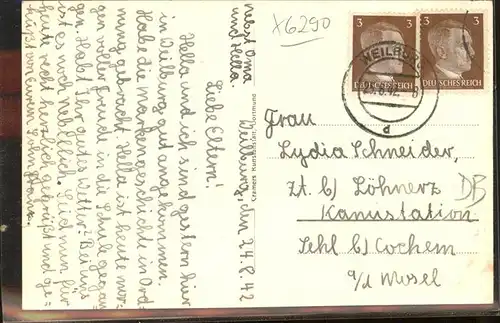 X6290
3 3
DEUTSCHES REICH DEUTSCHES REICH
WEILBURG
d
Weilburg, den 24.8.42
Liebe Eltern!
Hella und ich sind gestern hier
in Weilburg gut angekommen.
Habe die Markengeschichte in Ord-
nung gebracht. Hella ist heute mor-
gen voller Freude in die Schule gegan-
gen. Habt Ihr gutes Wetter? Bei uns
ist es noch neblich. Seid nun für
heute recht herzlich gegrüßt und ge-
küßt von Eurem
nebst Oma
und Hella.
Cramers Kunstanstalt, Dortmund
Frau
Lydia Schneider,
zt. b/ Löhnerz
DB
Kanustation
Sehl b/ Cochem
a/d Mosel